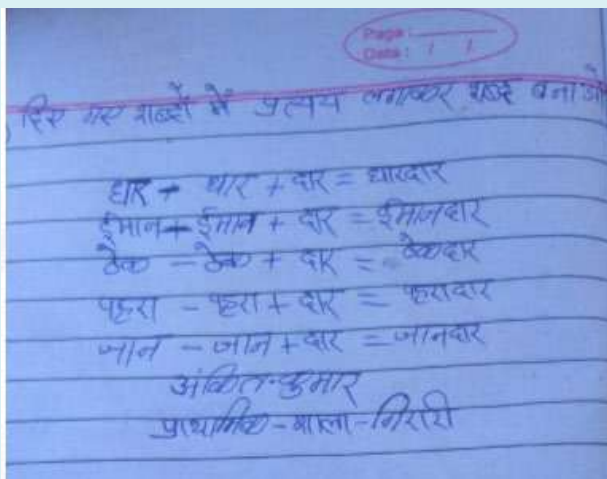 Page :
Date : / /
दिए गए शब्दों में प्रत्यय लगाकर शब्द बनाओ
धार - धार + दार = धारदार
ईमान - ईमान + दार = ईमानदार
ठेक - ठेक + दार = ठेकदार
पहरा - पहरा + दार = पहरादार
जान - जान + दार = जानदार
अंकित-कुमार
प्राथमिक-शाला-गिरारी